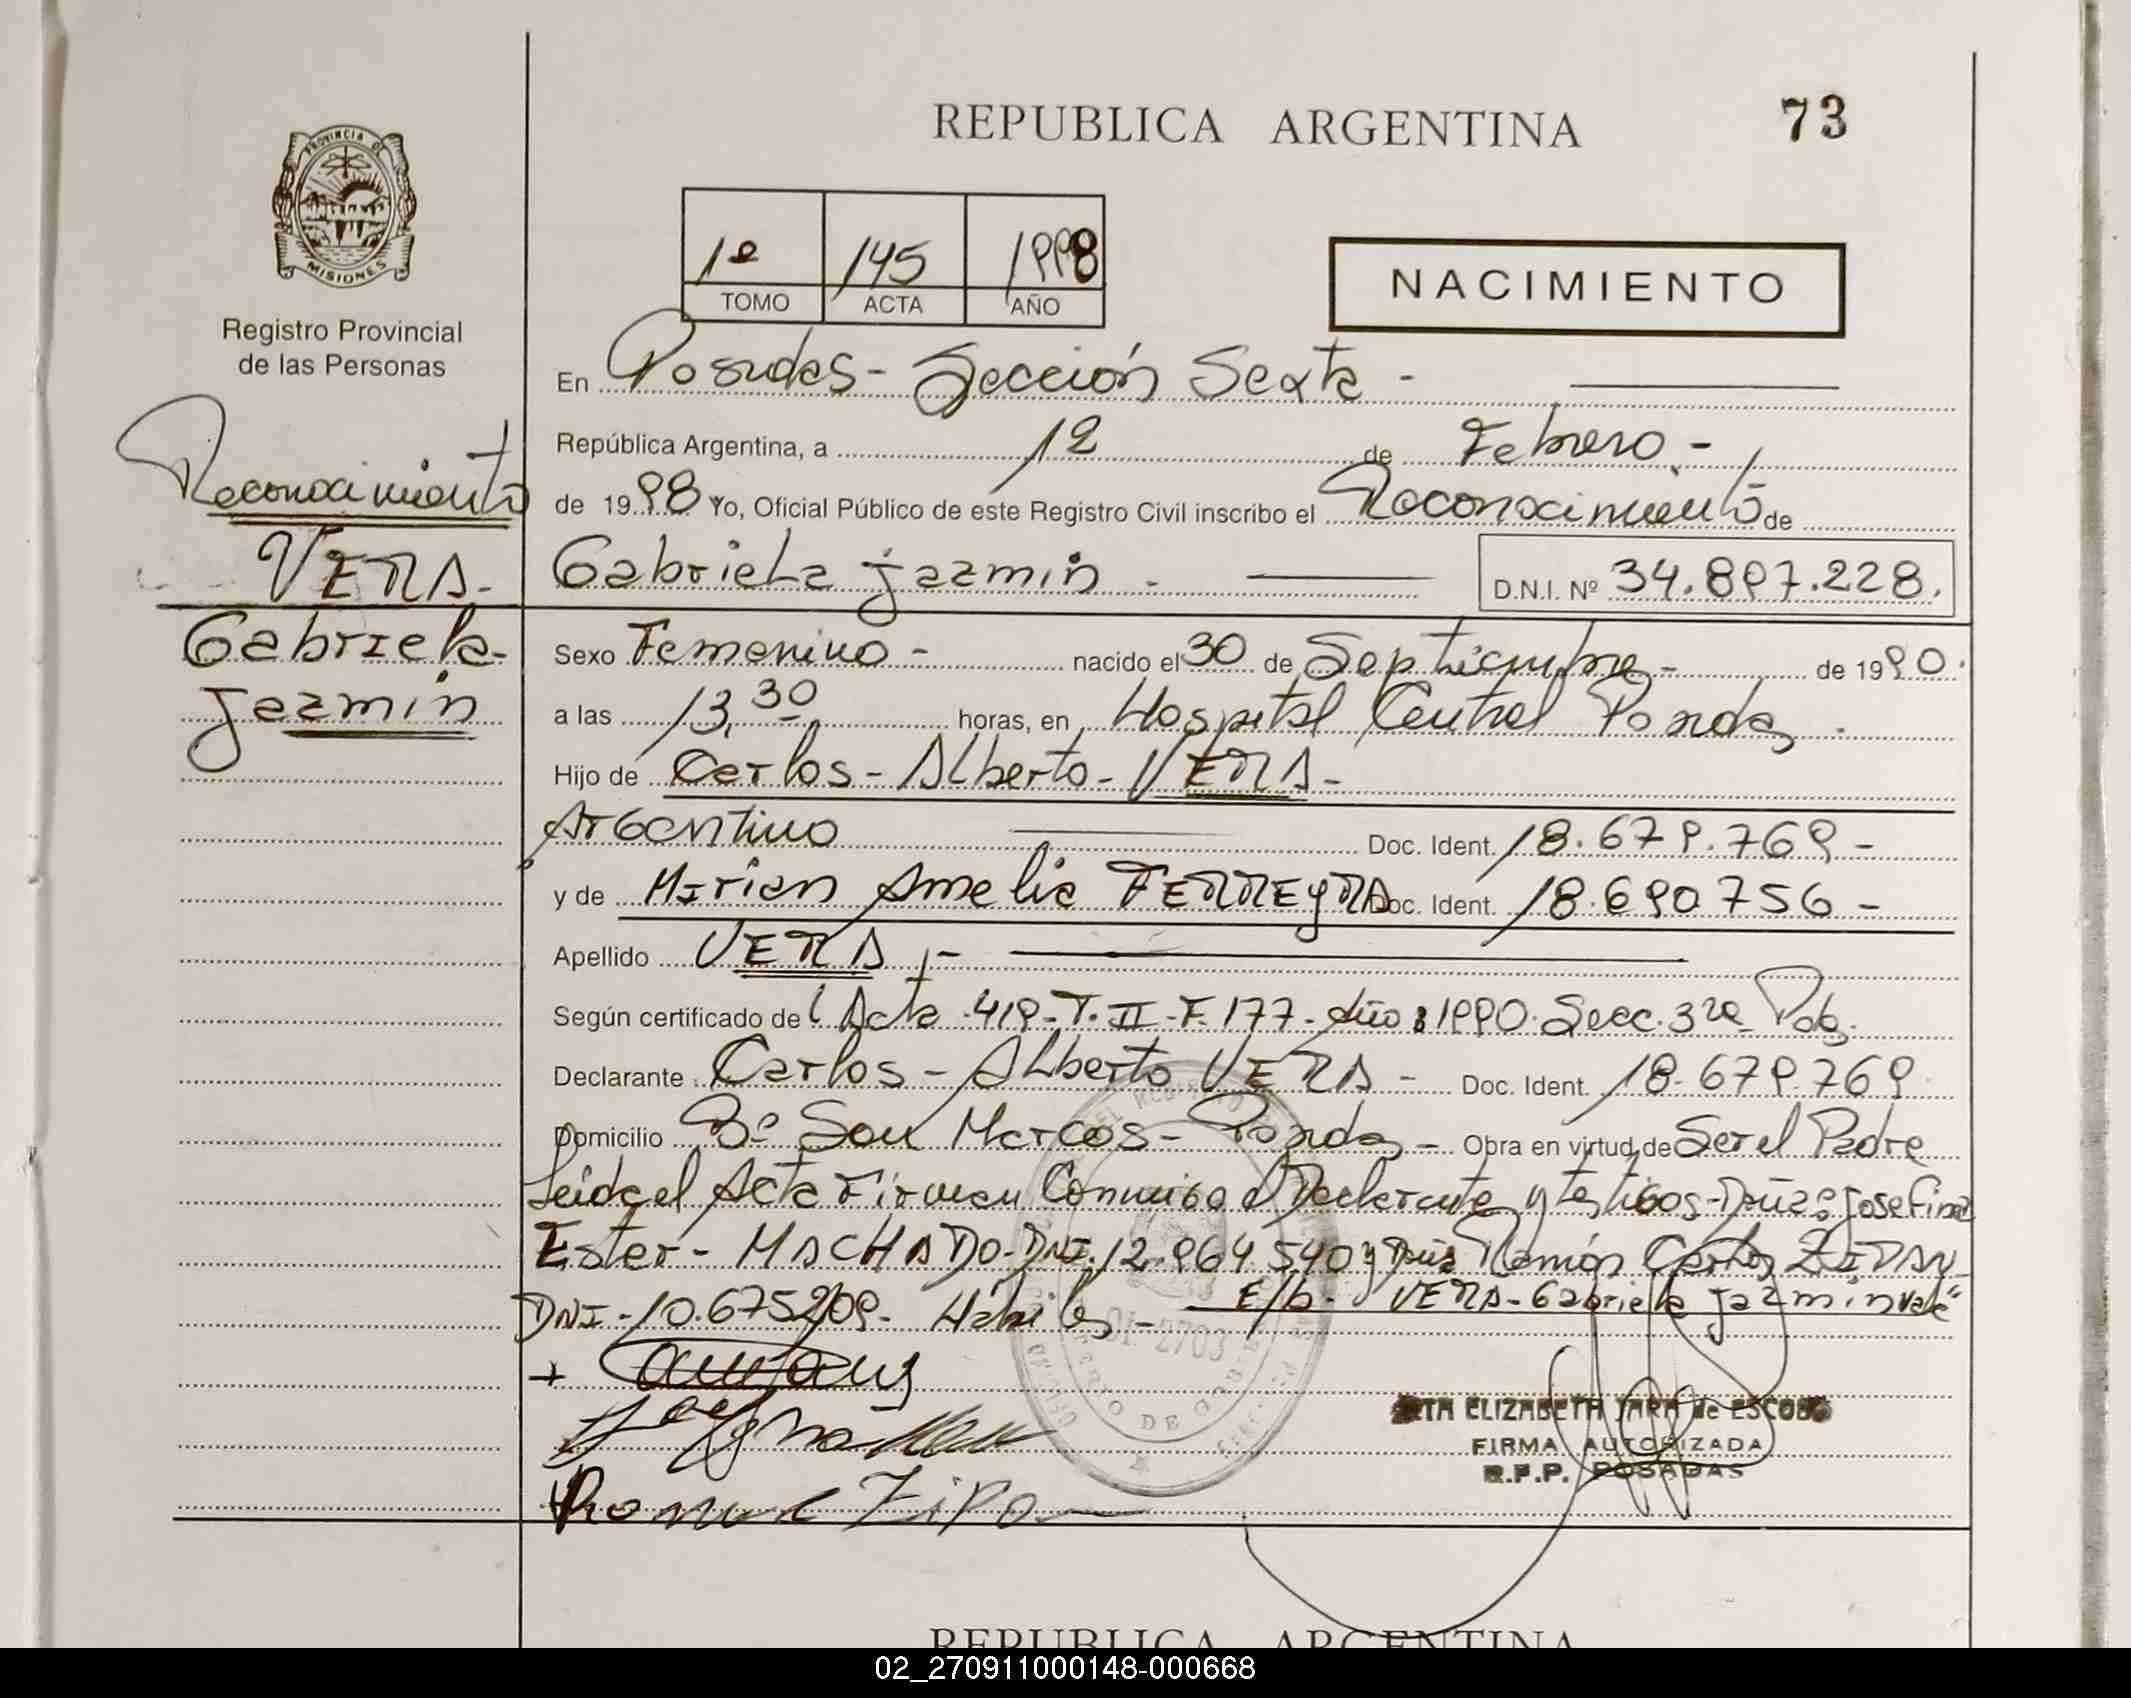 REPUBLICA ARGENTINA
73
PROVINCIA DE
MISIONES
Registro Provincial
de las Personas
1º 145 1998
TOMO ACTA AÑO
NACIMIENTO
Reconocimiento
VERA.-
Gabriela-
Jazmin
En Posadas - Sección Sexta -
República Argentina, a 12 de Febrero.-
de 1998 Yo, Oficial Público de este Registro Civil inscribo el Reconocimiento de
Gabriela Jazmin - D.N.I. Nº 34.897.228.
Sexo Femenino - nacido el 30 de Septiembre - de 1990.
a las 13,30 horas, en Hospital Central Posadas.
Hijo de Carlos - Alberto - VERA -
Argentino Doc. Ident. 18.679.769 -
y de Mirian Amelia FERREYRA Doc. Ident. 18.690.756 -
Apellido VERA.-
Según certificado de Acta 419 - T. II - F. 177 - Año: 1990. Secc. 3ra Pdas.
Declarante Carlos - Alberto VERA - Doc. Ident. 18.679.769
Domicilio Bº San Marcos - Posadas - Obra en virtud de Ser el Padre
Leida el Acta Firman Conmigo el Declarante y testigos - Doña: Josefina
Ester - MACHADO - DNI. 12.964.540 y Ramón Carlos
DNI - 10.675.209 - Habiles - E/b - VERA - Gabriela Jazmin vale"
ELIZABETH JARA de ESCOBAR
FIRMA AUTORIZADA
R.P.P. POSADAS
REPUBLICA ARGENTINA
02_270911000148-000668